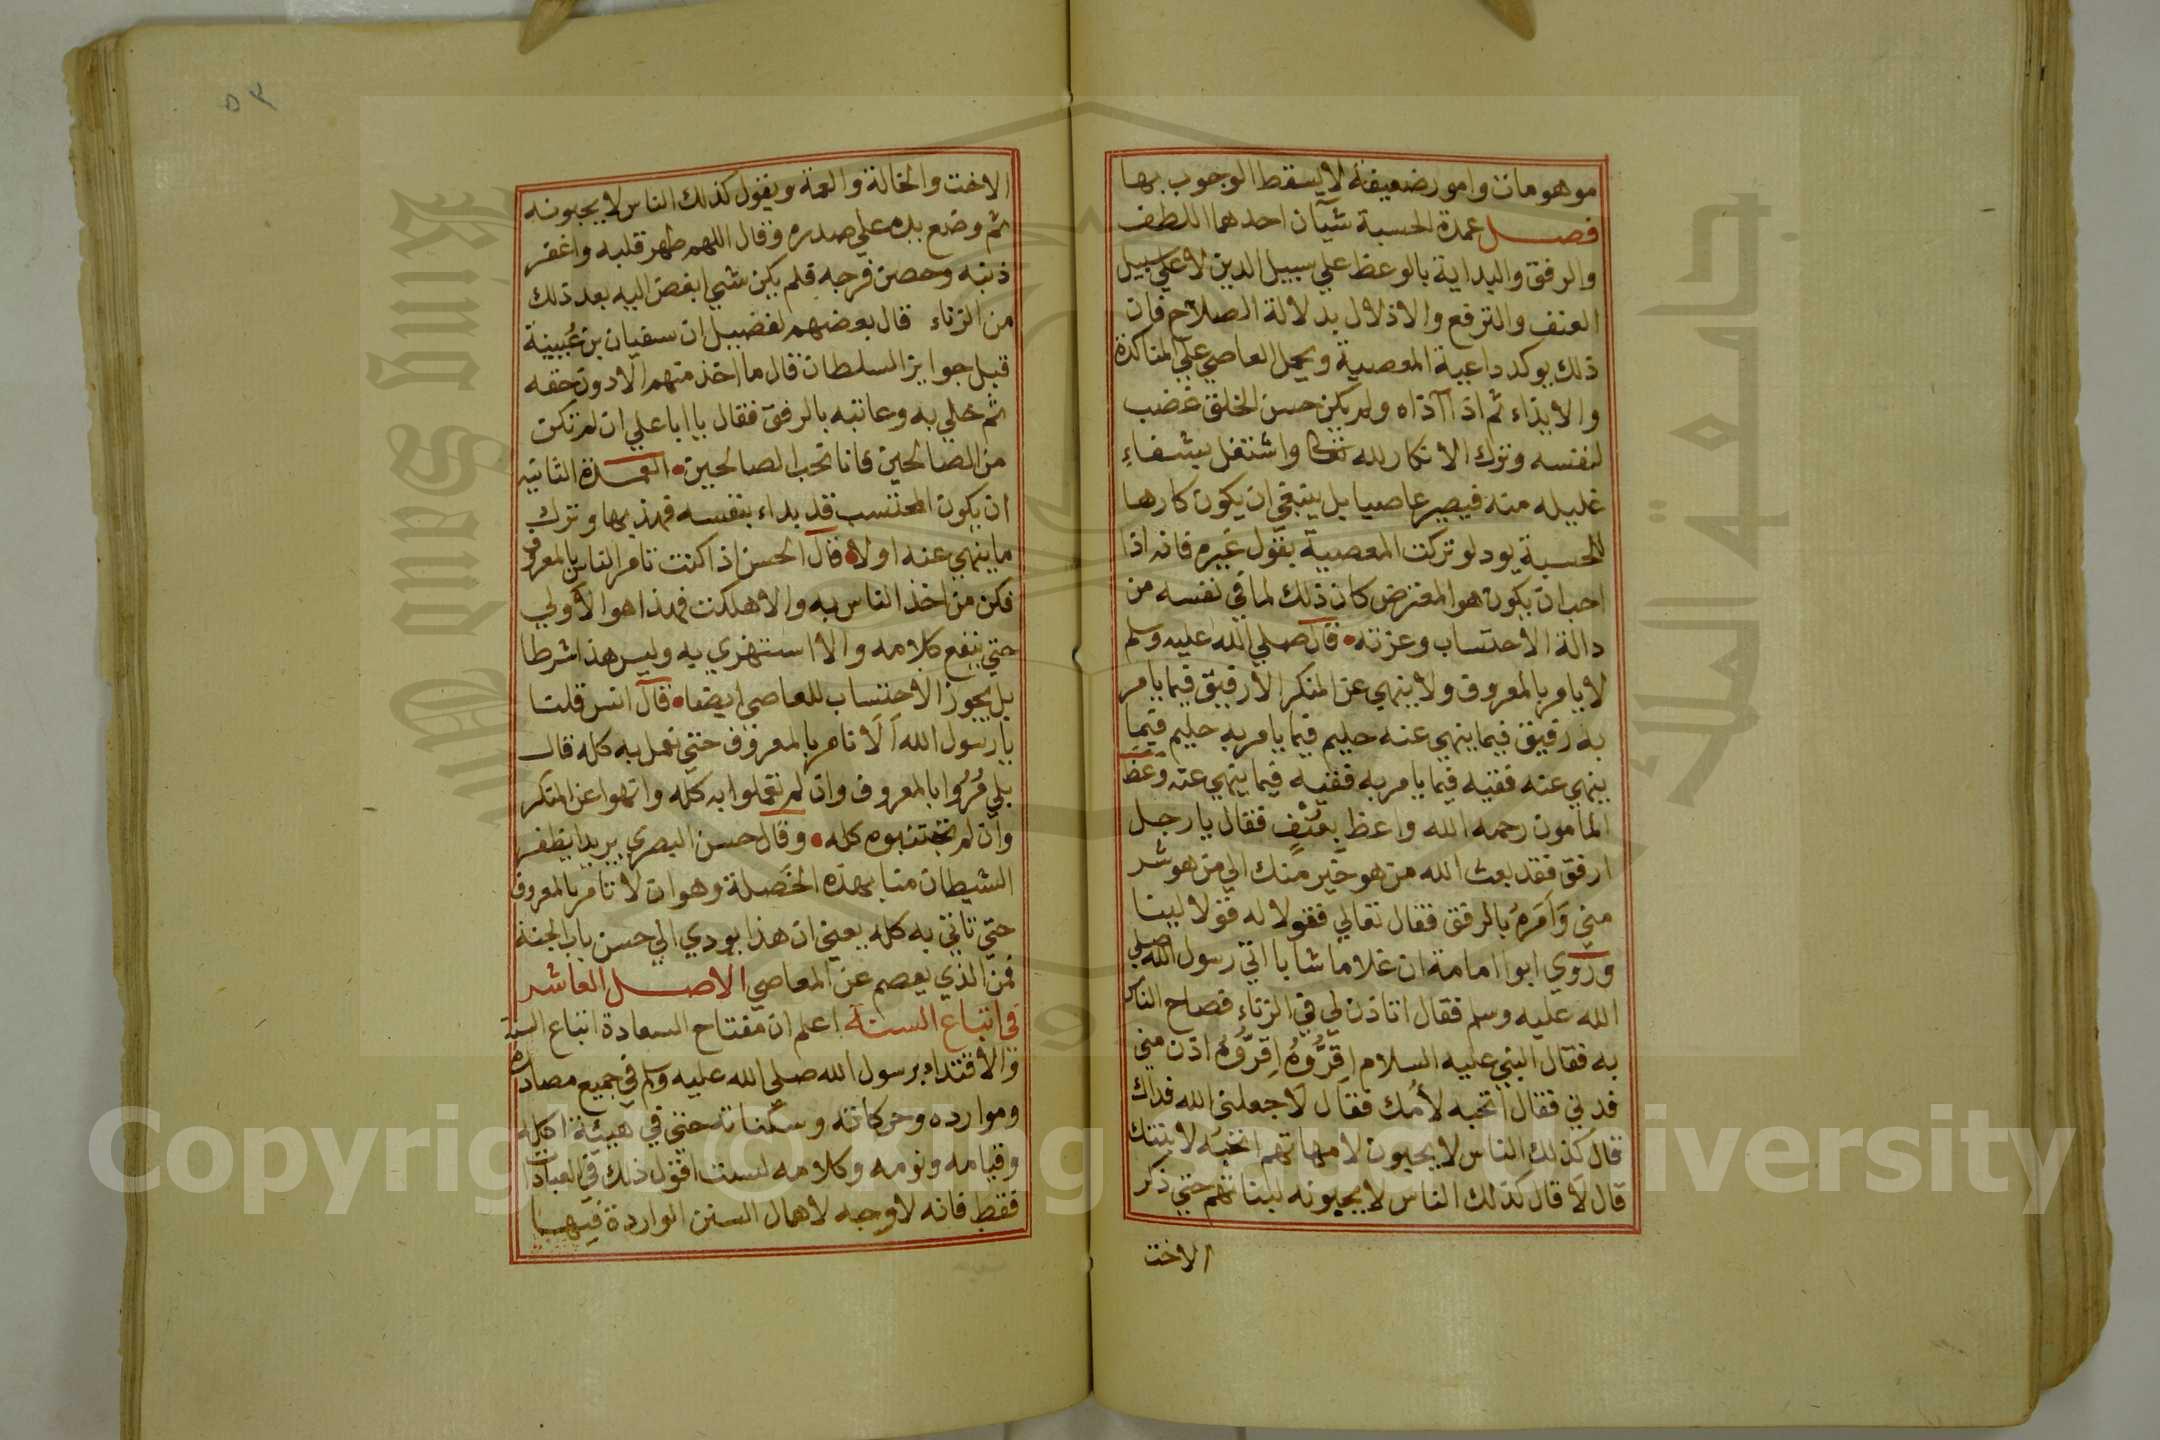 موهومات وامور ضعيفة لا يسقط الوجوب بها
فصل عمدة الحسبة شيآن احدهما اللطف
والرفق والبداية بالوعظ علي سبيل الدين لا علي سبيل
العنف والترفع والاذلال بدلالة الصلاح فان
ذلك يوكد داعية المعصية ويحمل العاصي علي المناكدة
والايذاء ثم اذا آذاه ولم يكن حسن الخلق غضب
لنفسه وترك الانكار لله واشتغل بشفاء
غليله منه فيصير عاصيا بل ينبغي ان يكون كارها
للحسبة يود لو تركت المعصية بقول غيره فانه اذا
احب ان يكون هو المعترض كان ذلك لما في نفسه من
دالة الاحتساب وعزته قال صلي الله عليه وسلم
لا يامر بالمعروف ولا ينهي عن المنكر الا رفيق فيما يامر
به رفيق فيما ينهي عنه حليم فيما يامر به حليم فيما
ينهي عنه فقيه فيما يامر به فقيه فيما ينهي عنه وعظ
المامون رحمه الله واعظ بعنف فقال يا رجل
ارفق فقد بعث الله من هو خير منك الي من هو شر
مني وامره بالرفق فقال تعالي فقولا له قولا لينا
وروي ابوا امامة ان غلاما شابا اتي رسول الله صلي
الله عليه وسلم فقال اتاذن لي في الزناء فصاح الناس
به فقال النبي عليه السلام اقروه اقروه ادن مني
فدني فقال اتحبه لأمك فقال لا جعلني الله فداك
قال كذلك الناس لا يحبون لامهاتهم اتحبه لابنتك
قال لا قال كذلك الناس لا يحبونه لبناتهم حتي ذكر
الاخت
٥٣
الاخت والخالة والعمة ويقول كذلك الناس لا يحبونه
ثم وضع يده علي صدره وقال اللهم طهر قلبه واغفر
ذنبه وحصن فرجه فلم يكن شئ ابغض اليه بعد ذلك
من الزناء قال بعضهم لفضيل ان سفيان بن عيينة
قبل جوايز السلطان قال ما اخذ منهم الا دون حقه
ثم خلي به وعاتبه بالرفق فقال يا ابا علي ان لم نكن
من الصالحين فانا نحب الصالحين العمدة الثانيه
ان يكون المحتسب قد بداء بنفسه فهذبها وترك
ما ينهي عنه اولا قال الحسن اذا كنت تامر الناس بالمعروف
فكن من اخذ الناس به والا هلكت فهذا هو الاولي
حتي ينفع كلامه والا استهزي به وليس هذا شرطا
بل يجوز الاحتساب للعاصي ايضا قال انس قلنا
يا رسول الله الا نامر بالمعروف حتي نعمل به كله قال
بلي مروا بالمعروف وان لم تعملوا به كله وانهوا عن المنكر
وان لم تجتنبوه كله وقال حسن البصري يريد ان يظفر
الشيطان منا بهذه الخصلة وهو ان لا تامر بالمعروف
حتي تاتي به كله يعني ان هذا يودي الي حسن باب الجنة
فمن الذي يعصم عن المعاصي الاصل العاشر
في اتباع السنة اعلم ان مفتاح السعادة اتباع السنة
والاقتداء برسول الله صلي الله عليه وسلم في جميع مصادره
وموارده وحركاته وسكناته حتي في هيئة اكله
وقيامه ونومه وكلامه لست اقول ذلك في العبادات
فقط فانه لا وجه لاهمال السنن الواردة فيها
Copyright © King Saud University
King Saud University
جامعة الملك سعود